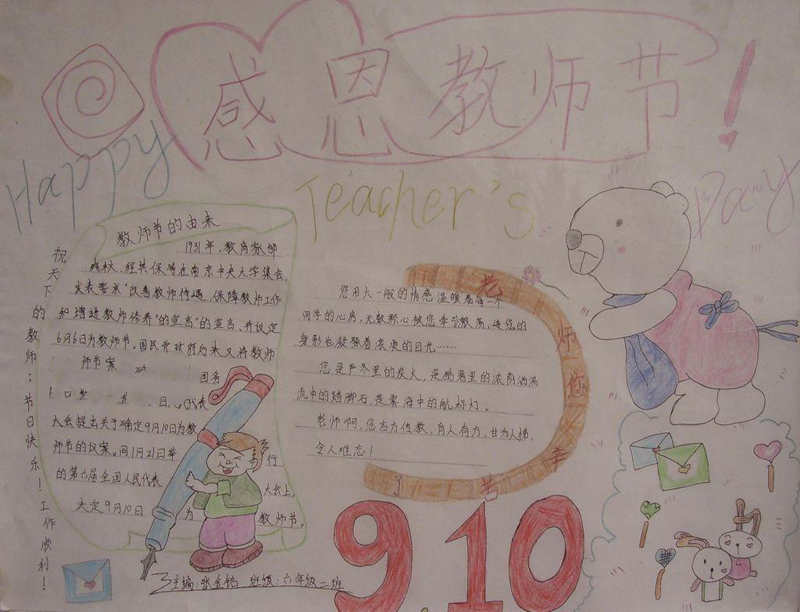 感恩教师节!
Happy Teacher's Day
祝天下的教师:节日快乐!工作顺利!
教师节的由来
1931年,教育家邰
爽秋、程其保等在南京中央大学集会,
发表要求"改善教师待遇,保障教师工作
和增进教师修养"的宣言"的宣言,并议定
6月6日为教师节。国民党政府后来又将教师
师节案
国务
日
大会提出关于确定9月10日为教
师节的议案。同1月21日举行
的第六届全国人民代表大会上,
决定9月10日为教师节。
您用大一般的情感温暖着每一个
同学的心房,无数颗心被您
身影也凝聚着滚滚的目光……
您是严冬里的炭火,是酷暑里的浓荫洒湍
流中的踏脚石,是雾海中的航标灯。
老师啊,您言力传教,育人有力,甘为人梯,
令人难忘!
老师您辛苦了
9.10
主编:张金 班级:六年级二班